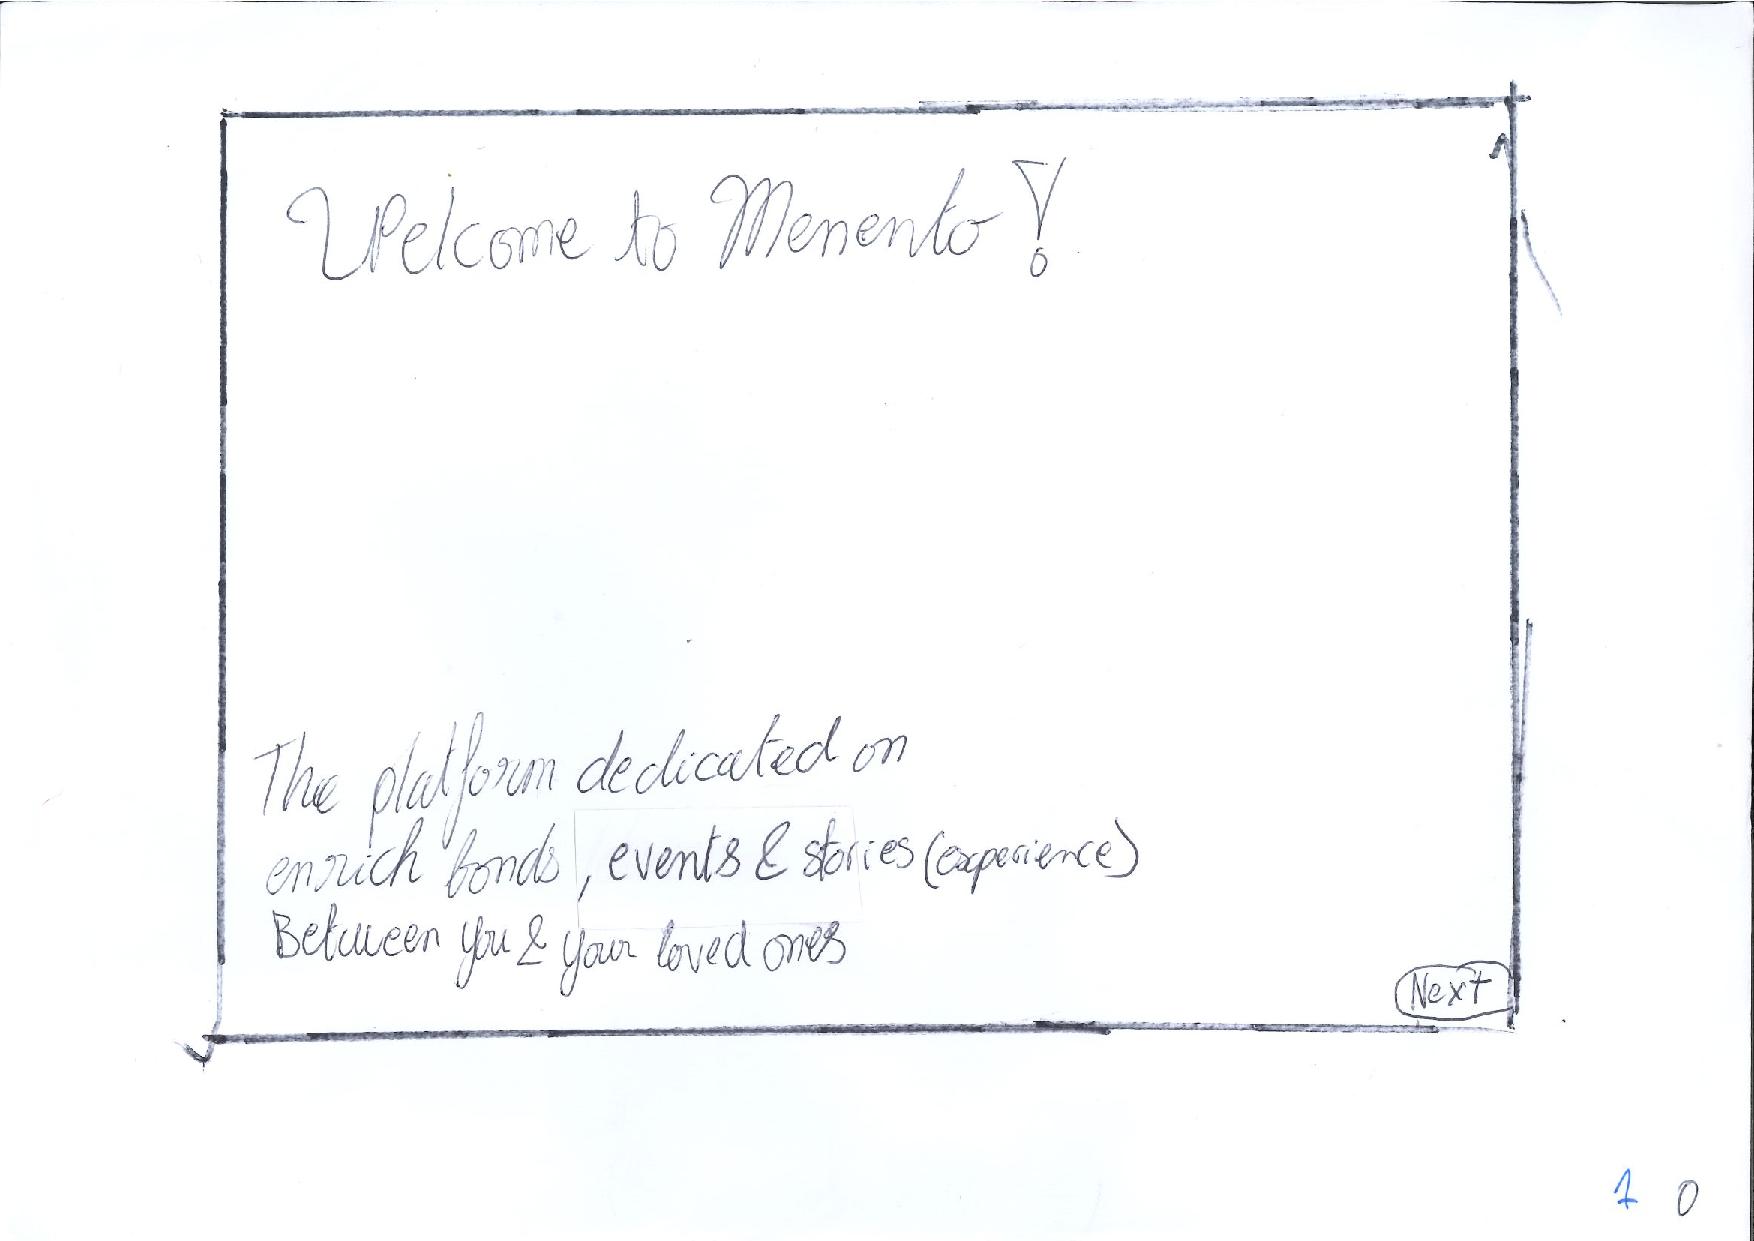 Welcome to Menento!
The platform dedicated on
enrich bonds, events & stories (experience)
Between you & your loved ones
Next
1 0